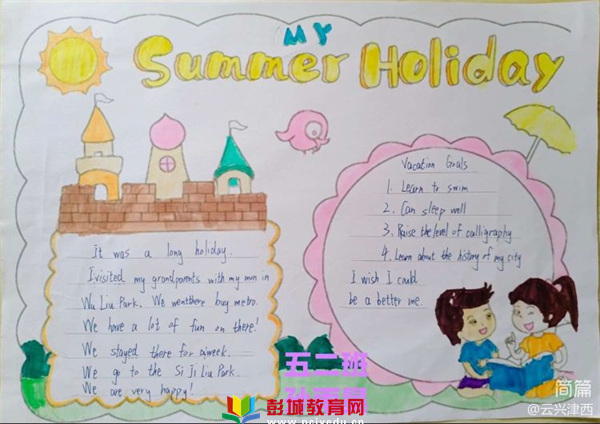 MY
Summer Holiday
It was a long holiday.
I visited my grandparents with my mom in
Wu Liu Park. We wentthere buy metro.
We have a lot of fun on there!
We stayed there for aweek.
We go to the Si Ji Liu Park.
We are very happy!
Vacation Goals
1. Learn to swim
2. Can sleep well
3. Raise the level of calligraphy
4. Learn about the history of my city
I wish I could
be a better me.
五二班
彭城教育网
www.pcjyedu.com
简篇
@云兴津西